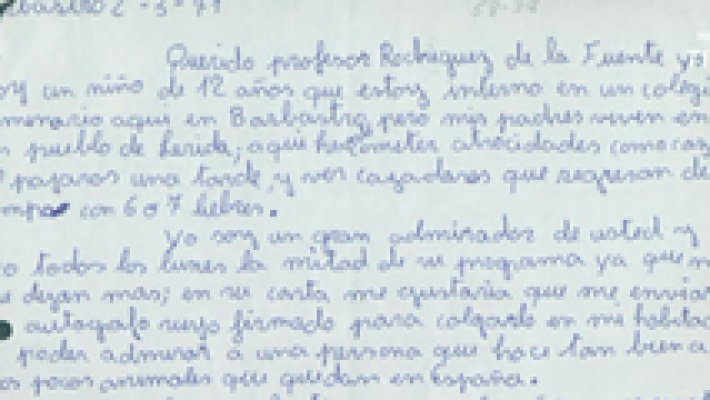 Barbastro 2-3-71
Querido profesor Rodriguez de la Fuente yo
oy un niño de 12 años que estoy interno en un colegi
menario aqui en Barbastro pero mis padres viven en
n pueblo de Lerida; aqui he cometer atrocidades como caz
pajaros una tarde, y ver cazadores que regresan de
ampo con 6 o 7 liebres.
Yo soy un gran admirador de usted y
o todos los lunes la mitad de su programa ya que n
e dejan mas; en su carta me gustaria que me enviar
autografo suyo firmado para colgarlo en mi habitac
poder admirar a una persona que hace tan bien a
os pocos animales que quedan en España.